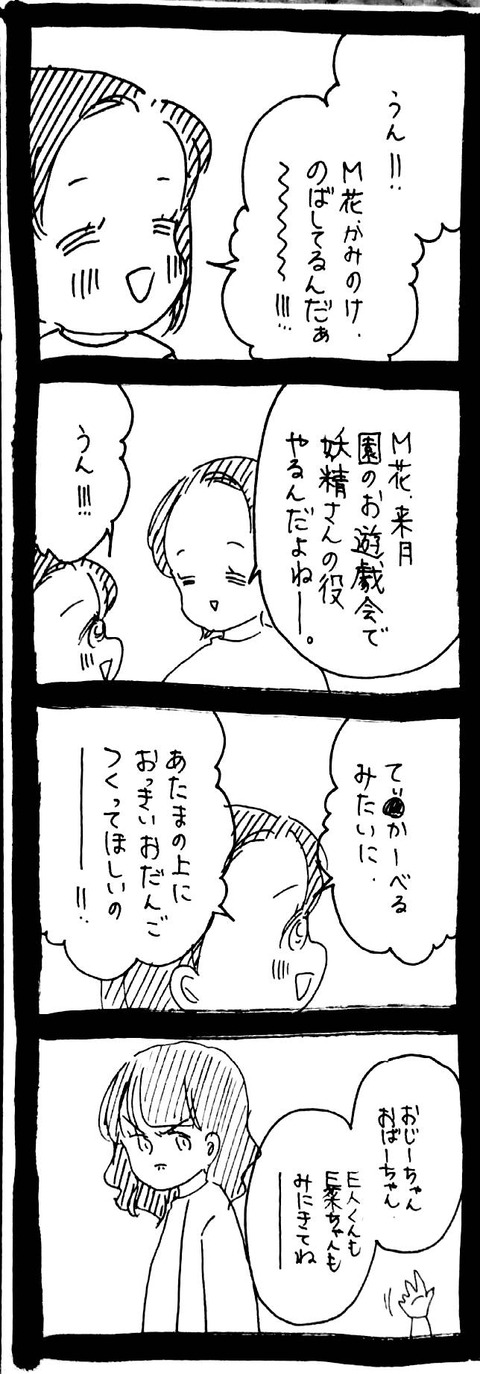 うん!!
M花、かみのけ、
のばしてるんだぁ
〜〜〜〜!!!
M花、来月
園のお遊戯会で
妖精さんの役
やるんだよねー。
うん!!!
てぃ●かーべる
みたいに、
あたまの上に
おっきいおだんご
つくってほしいの
ーーー!!
おじーちゃん
おばーちゃん、
E人くんも
E菜ちゃんも
みにきてね
ーーー